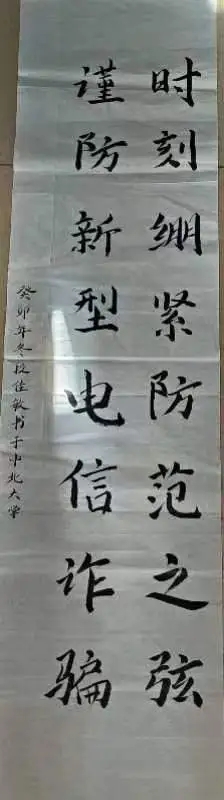 时刻绷紧防范之弦
谨防新型电信诈骗
癸卯年冬段佳敏书于中北大学